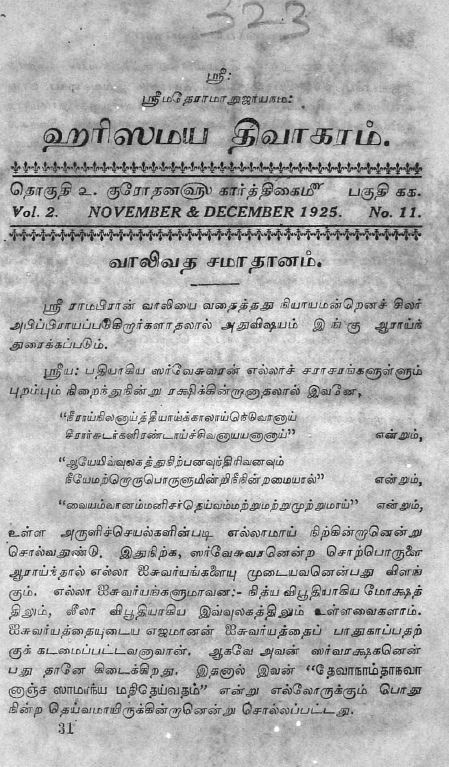 323
ஸ்ரீ:
ஸ்ரீமதேராமாநுஜாயநம:
ஹரிஸமய திவாகரம்.
தொகுதி உ. குரோதனவ௵ கார்த்திகைம௴ பகுதி கக.
Vol. 2. NOVEMBER & DECEMBER 1925. No. 11.
வாலிவத சமாதானம்.
ஸ்ரீ ராமபிரான் வாலியை வதைத்தது நியாயமன்றெனச் சிலர்
அபிப்பிராயப்படுகிறார்களாதலால் அதுவிஷயம் இங்கு ஆராய்ந்
துரைக்கப்படும்.
ஸ்ரீய: பதியாகிய ஸர்வேசுவரன் எல்லாச் சராசரங்களுள்ளும்
புறம்பும் நிறைந்துநின்று ரக்ஷிக்கின்றானாதலால் இவனே,
“நீராய்நிலனாய்த்தீயாய்க்காலாய்நெடுவானாய்
சீரார்சுடர்களிரண்டாய்ச்சிவனாயயனானாய்” என்றும்,
“ஆயேயிவ்வுலகத்துநிற்பனவுந்திரிவனவும்
நீயேமற்றொருபொருளுமின்றிநீநின்றமையால்” என்றும்,
“வையம்வானம்மனிசர்தெய்வம்மற்றுமற்றுமுற்றுமாய்” என்றும்,
உள்ள அருளிச்செயல்களின்படி எல்லாமாய் நிற்கின்றானென்று
சொல்வதுண்டு. இதுநிற்க, ஸர்வேசுவரனென்ற சொற்பொருளை
ஆராய்ந்தால் எல்லா ஐசுவர்யங்களையு முடையவனென்பது விளங்
கும். எல்லா ஐசுவர்யங்களுமாவன:- நித்ய விபூதியாகிய மோக்ஷத்
திலும், லீலா விபூதியாகிய இவ்வுலகத்திலும் உள்ளவைகளாம்.
ஐசுவர்யத்தையுடைய எஜமானன் ஐசுவர்யத்தைப் பாதுகாப்பதற்
குக் கடமைப்பட்டவனாவான். ஆகவே அவன் ஸர்வரக்ஷகனென்
பது தானே கிடைக்கிறது. இதனால் இவன் “தேவாநாம்தாநவா
னாஞ்ச ஸாமாந்ய மதிதெய்வதம்” என்று எல்லோருக்கும் பொது
நின்ற தெய்வமாயிருக்கின்றானென்று சொல்லப்பட்டது.
31